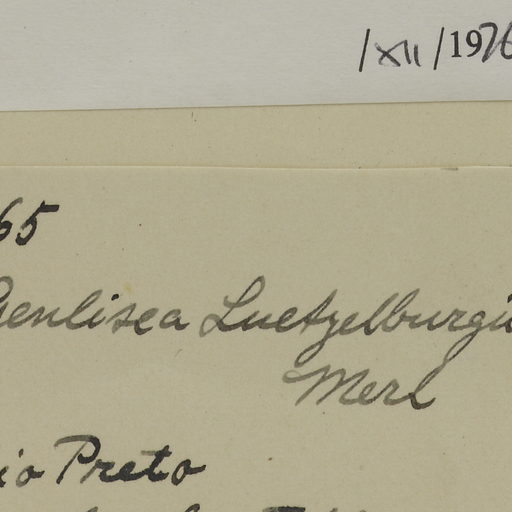 /XII/1976
65
Genlisea Luetzelburgii
Merl
io Preto